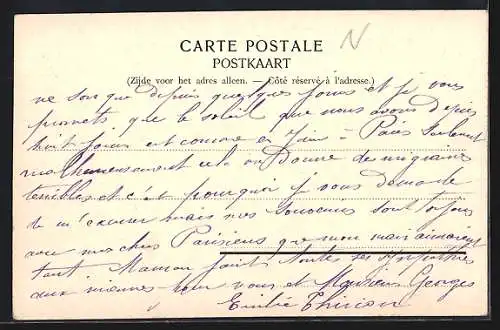 CARTE POSTALE
POSTKAART
(Zijde voor het adres alleen. — Côté réservé à l'adresse.)
N
ne sors que depuis quelques jours et je vous
promets que le soleil que nous avons depuis
huit jours est comme en Juin à Paris seulement
malheureusement cela donne des migraines
terribles et c'est pourquoi je vous demande
de m'excuser mais mes souvenirs sont toujours
avec mes chers Parisiens que mon mari aimaient
tant. Maman joint toutes ses sympathies
aux miennes pour vous et Monsieur Georges
Emilie Thirion